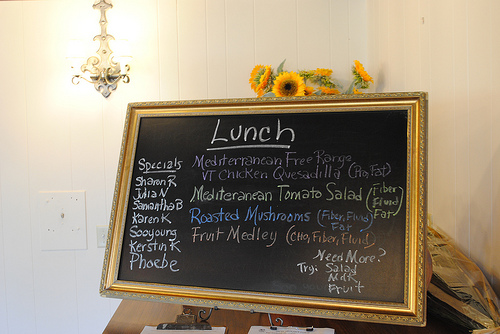 Lunch
Specials
Sharon R
Julia N
Samantha B
Karen K
Sooyoung
Kerstin K
Phoebe
Mediterranean Free Range
VT Chicken Quesadilla (CHO, Fat)
Mediteranean Tomato Salad (Fiber
Fluid
Fat)
Roasted Mushrooms (Fiber, Fluid)
Fat
Fruit Medley (CHO, Fiber, Fluid)
Need More?
Try: Salad
Nuts
Fruit